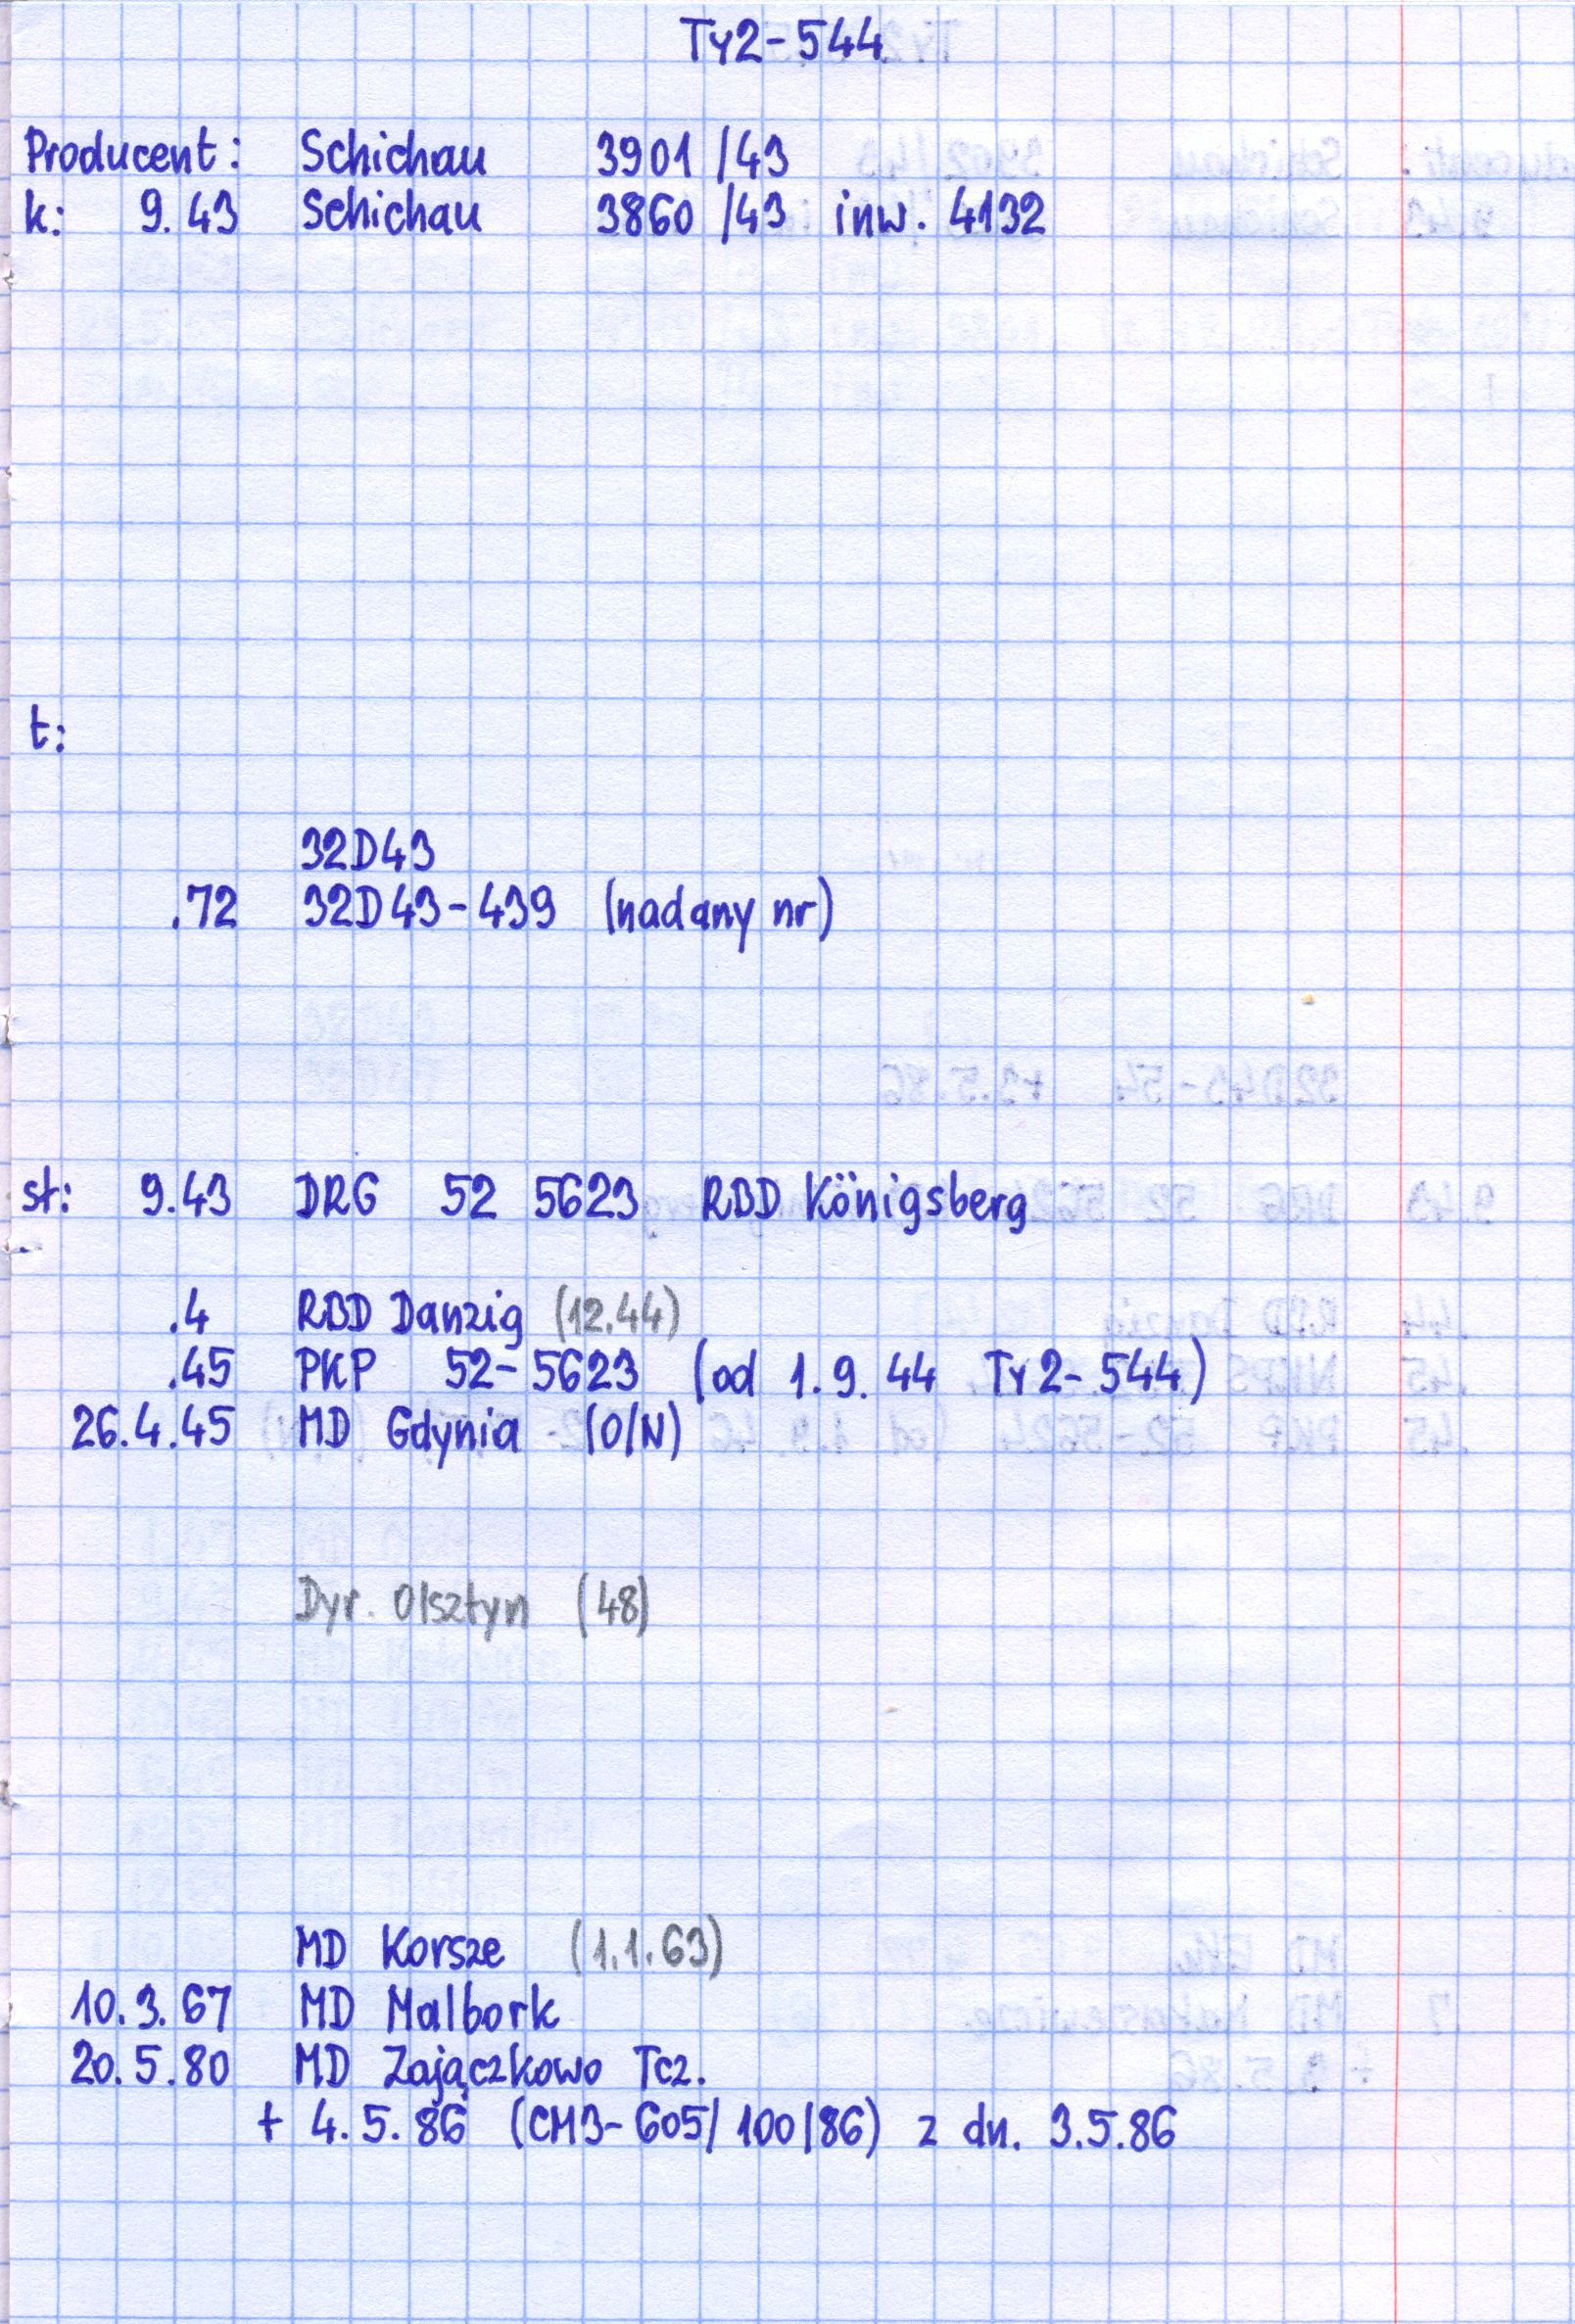 Ty2-544
Producent: Schichau 3901/43
k: 9.43 Schichau 3860/43 inw. 4132
t:
32D43
.72 32D43-439 (nadany nr)
st: 9.43 DRG 52 5623 RBD Königsberg
.4 RBD Danzig (12.44)
.45 PKP 52-5623 (od 1.9.44 Ty2-544)
26.4.45 MD Gdynia (O/N)
Dyr. Olsztyn (48)
MD Korsze (1.1.63)
10.3.67 MD Malbork
20.5.80 MD Zajączkowo Tcz.
+ 4.5.86 (CM3-605/100/86) z dn. 3.5.86